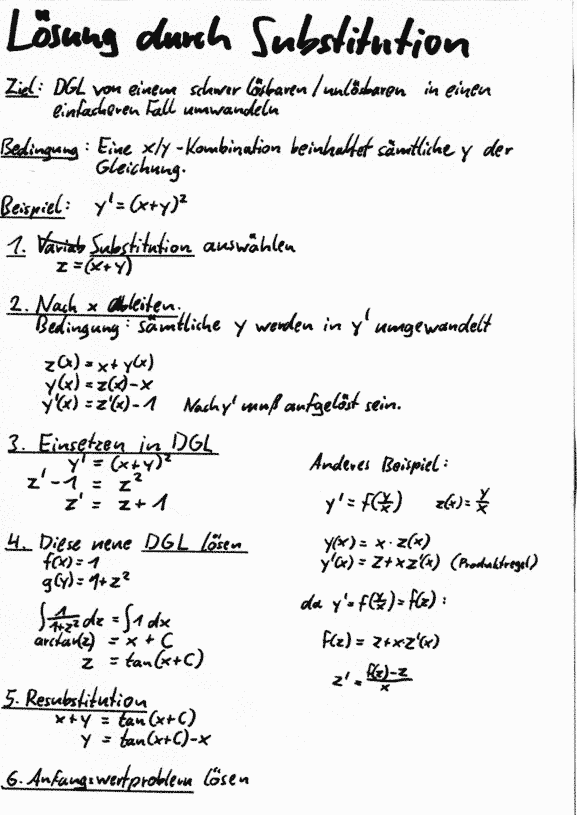 Lösung durch Substitution
Ziel: DGL von einem schwer lösbaren/unlösbaren in einen
einfacheren Fall umwandeln
Bedingung: Eine x/y-Kombination beinhaltet sämtliche y der
Gleichung.
Beispiel: y' = (x+y)²
1. Variab Substitution auswählen
z = (x+y)
2. Nach x ableiten.
Bedingung: sämtliche y werden in y' umgewandelt
z(x) = x + y(x)
y(x) = z(x) - x
y'(x) = z'(x) - 1 Nach y' muß aufgelöst sein.
3. Einsetzen in DGL
y' = (x+y)²
z' - 1 = z²
z' = z + 1
4. Diese neue DGL lösen
f(x) = 1
g(y) = 1 + z²
∫ 1/(1+z²) dz = ∫ 1 dx
arctan(z) = x + C
z = tan(x+C)
5. Resubstitution
x + y = tan(x+C)
y = tan(x+C) - x
6. Anfangswertproblem lösen
Anderes Beispiel:
y' = f(y/x) z(x) = y/x
y(x) = x · z(x)
y'(x) = z + x z'(x) (Produktregel)
da y' = f(y/x) = f(z):
f(z) = z + x · z'(x)
z' = (f(z) - z)/x